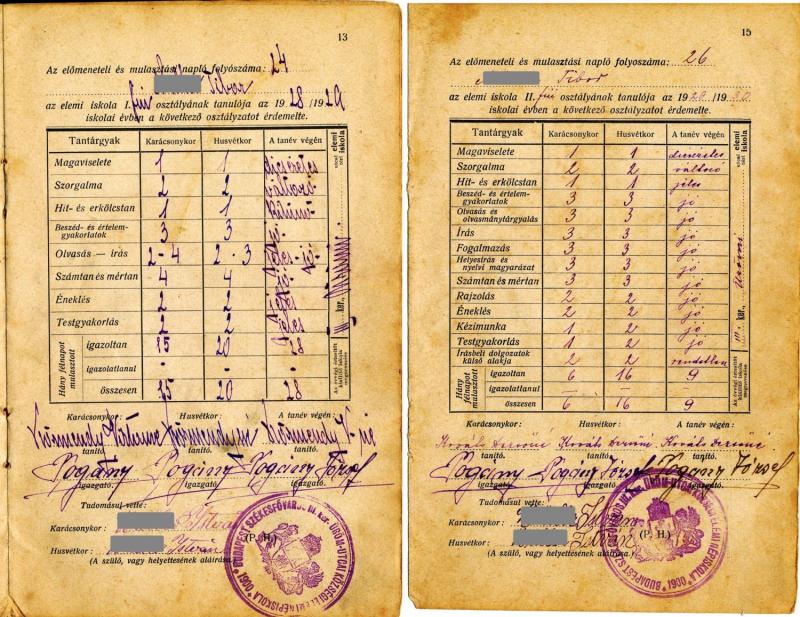 13
Az előmeneteli és mulasztási napló folyószáma: 24
Tibor
az elemi iskola I. fiú osztályának tanulója az 1928/1929
iskolai évben a következő osztályzatot érdemelte.
Tantárgyak Karácsonykor Husvétkor A tanév végén
Magaviselete 1 1 dicséretes
Szorgalma 2 2 változó
Hit- és erkölcstan 1 1 kitünő
Beszéd- és értelemgyakorlatok 3 3 jó
Olvasás — irás 2-4 2-3 jeles-jó
Számtan és mértan 4 4 jó
Éneklés 2 2 jeles
Testgyakorlás 2 2 jeles
Hány félnapot mulasztott
igazoltan 15 20 28
igazolatlanul - - -
összesen 15 20 28
Karácsonykor: Husvétkor: A tanév végén:
Körmendy Körmendy Körmendy
tanitó. tanitó. tanitó.
Pogány Pogány Pogány József
igazgató. igazgató. igazgató.
Tudomásul vette:
Karácsonykor: István
Husvétkor: István
(P. H.)
(A szülő, vagy helyettesének aláirása.)
BUDAPEST SZÉKESFŐVÁROSI III. ker. ÜRÖM-UTCAI KÖZSÉGI ELEMI NÉPISKOLA * 1900 *
15
Az előmeneteli és mulasztási napló folyószáma: 26
Tibor
az elemi iskola II. fiú osztályának tanulója az 1929/1930
iskolai évben a következő osztályzatot érdemelte.
Tantárgyak Karácsonykor Husvétkor A tanév végén
Magaviselete 1 1 dicséretes
Szorgalma 2 2 változó
Hit- és erkölcstan 1 1 jeles
Beszéd- és értelemgyakorlatok 3 3 jó
Olvasás és olvasmánytárgyalás 3 3 jó
Írás 3 3 jó
Fogalmazás 3 3 jó
Helyesírás és nyelvi magyarázat 3 3 jó
Számtan és mértan 3 3 jó
Rajzolás 2 2 jó
Éneklés 2 2 jó
Kézimunka 1 2 jó
Testgyakorlás 1 2 jó
Írásbeli dolgozatok külső alakja 2 2 rendetlen
Hány félnapot mulasztott
igazoltan 6 16 9
igazolatlanul — — —
összesen 6 16 9
Karácsonykor: Husvétkor: A tanév végén:
Kováts Dezsőné Kováts Dezsőné Kováts Dezsőné
tanító. tanító. tanító.
Pogány Pogány József Pogány József
igazgató. igazgató. igazgató.
Tudomásul vette:
Karácsonykor: István
Husvétkor: István
(P. H.)
(A szülő, vagy helyettesének aláírása.)